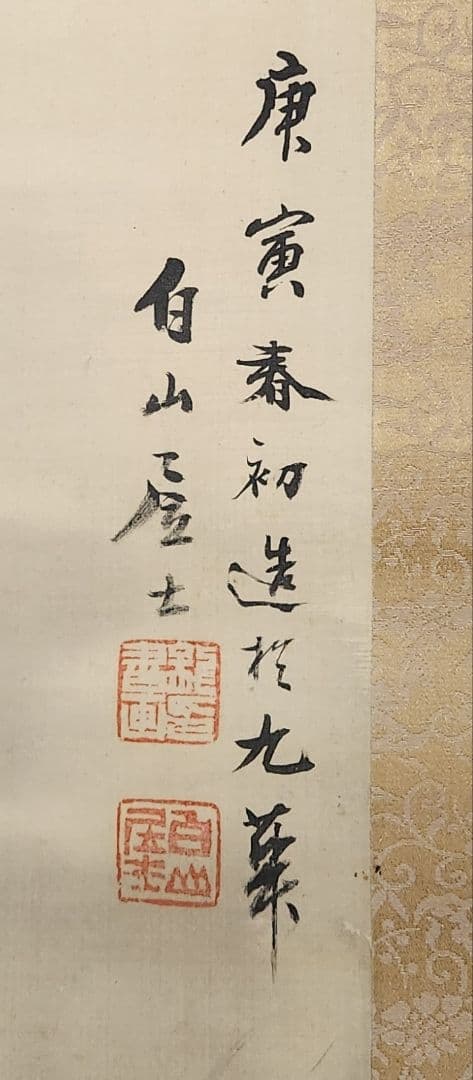 庚寅春初造於九華
白山居士
書画
白山
居士